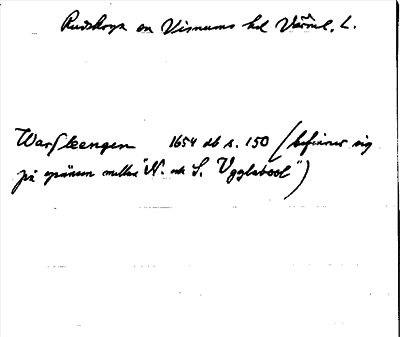 Rudskoga sn Visnums hd Värml. L.
Warfleengen 1654 db s. 150 (befinner sig
på gränsen mellan "N. och S. Ugglebool")